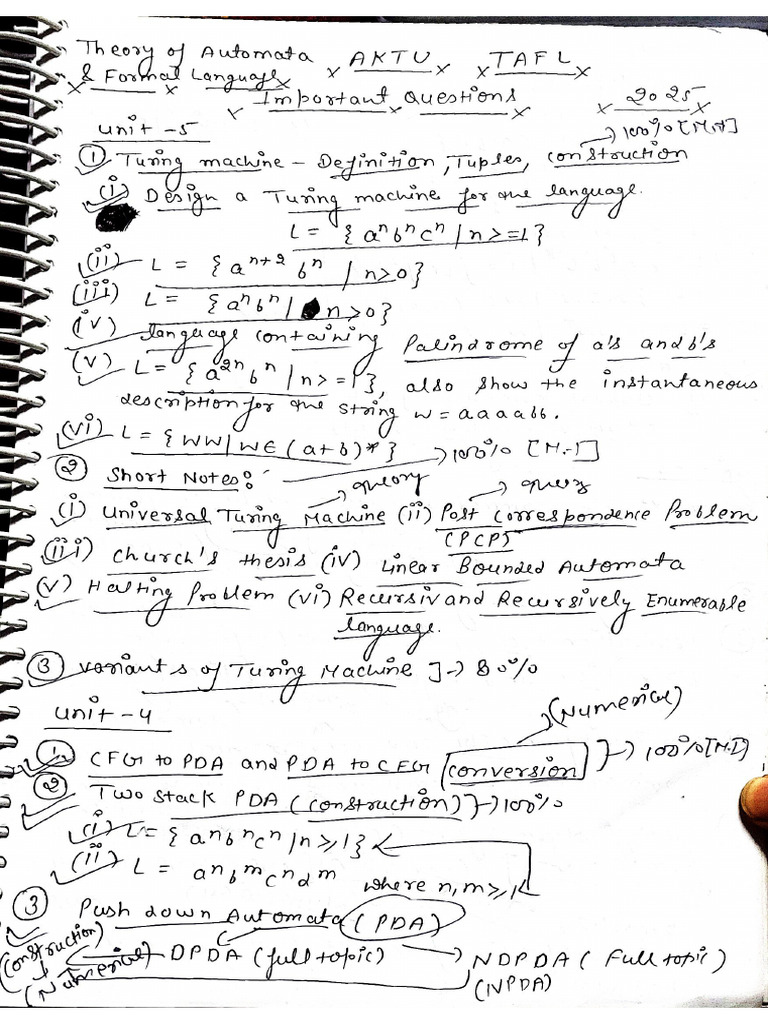 Theory of Automata AKTU TAFL
& Formal Language
Important Questions 2025
unit-5 → 100% [M.I]
① Turing machine - Definition, Tuples, construction
(i) Design a Turing machine for the language.
L = {aⁿbⁿcⁿ | n>=1}
(ii) L = {aⁿ⁺²bⁿ | n>0}
(iii) L = {aⁿbⁿ | n>0}
(iv) language containing Palindrome of a's and b's
(v) L = {a²ⁿbⁿ | n>=1}, also show the instantaneous
description for the string w = aaaabb.
(vi) L = {WW | W∈(a+b)*}
② Short Notes: → 100% [M.I]
→ theory → query
(i) Universal Turing Machine (ii) Post Correspondence Problem
(PCP)
(iii) Church's thesis (iv) Linear Bounded Automata
(v) Halting Problem (vi) Recursiv and Recursively Enumerable
language.
③ variants of Turing Machine ] → 80%
unit-4
(Numerical)
① CFG to PDA and PDA to CFG (conversion } → 100% [M.I]
② Two stack PDA (construction) } → 100%
(i) L = {aⁿbⁿcⁿ | n≥1}
(ii) L = aⁿbᵐcⁿdᵐ where n,m≥1
③ Push down Automata (PDA)
(construction)
(Numerical) DPDA (full topic) → NDPDA (Full topic)
(NPDA)